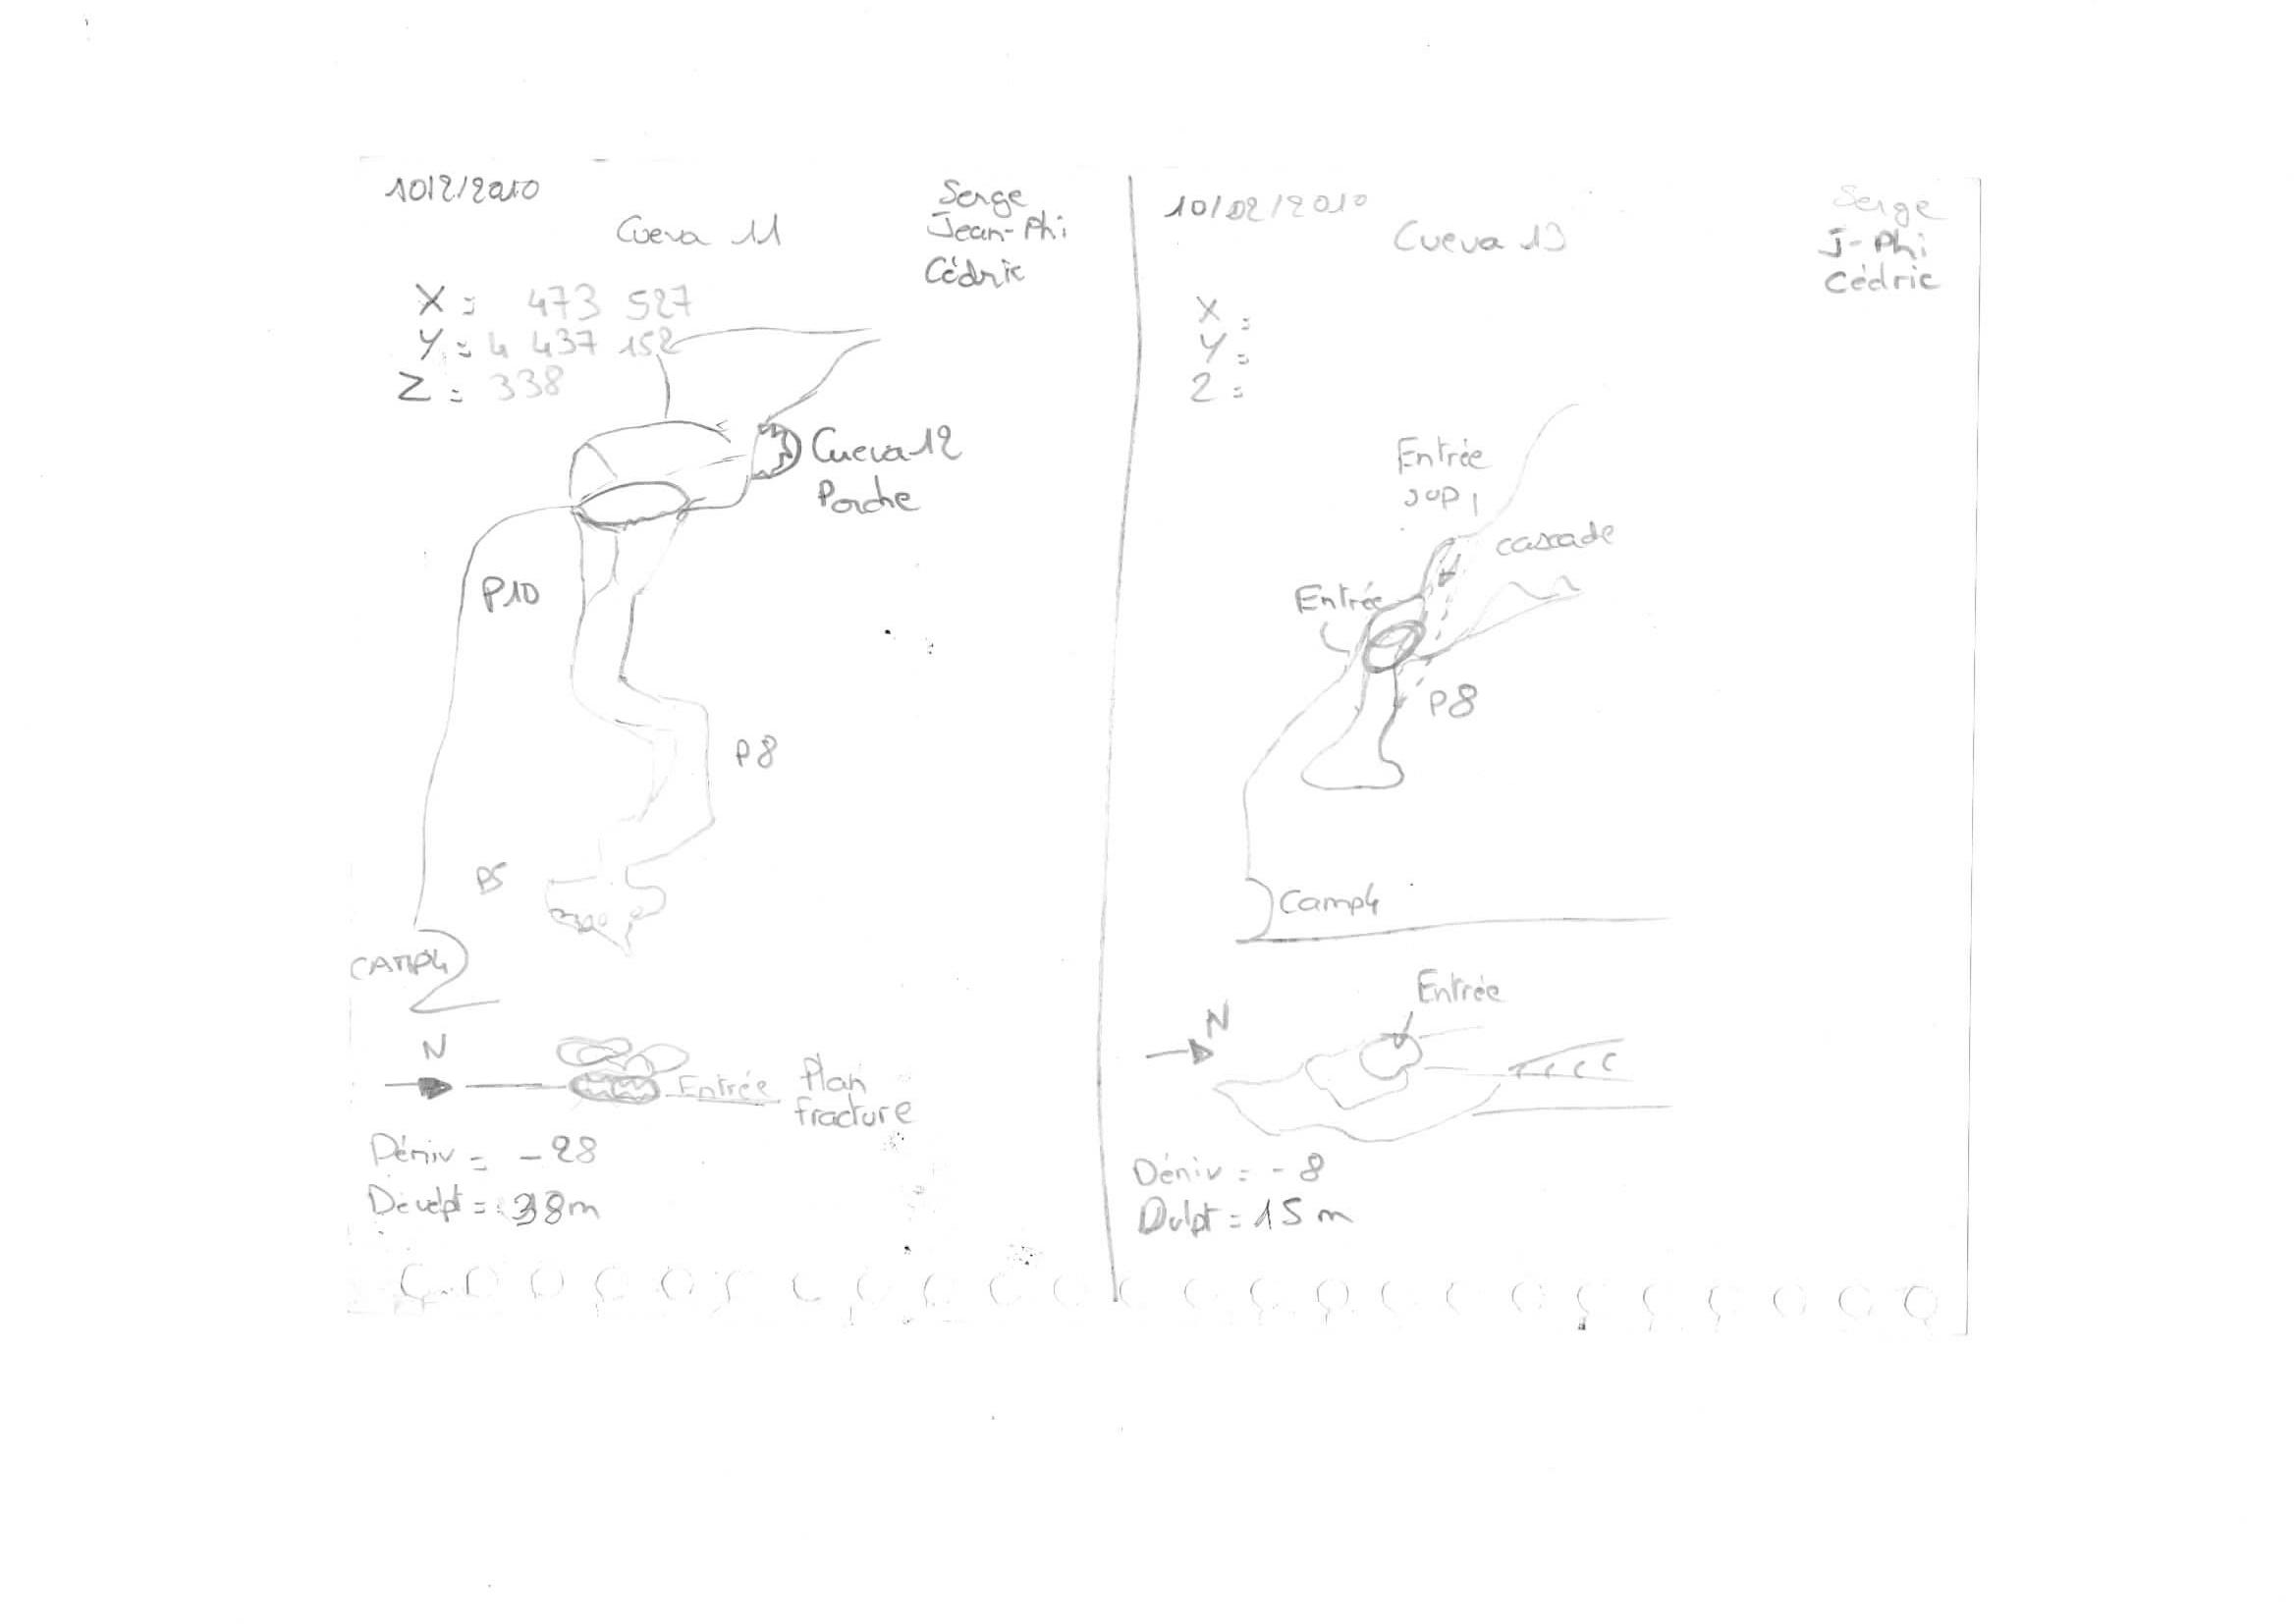 10/2/2010
Serge
Jean-Phi
Cédric
Cueva 11
X = 473 527
Y = 4 437 152
Z = 338
Cueva 12
Porche
P10
P8
P5
CAMP4
N
Entrée
Plan
fracture
Déniv = -28
Develpt = 38m
10/02/2010
Serge
J-Phi
Cédric
Cueva 13
X =
Y =
Z =
Entrée
sup
cascade
Entrée
P8
Camp4
Entrée
N
Déniv = -8
Dvlpt = 15 m